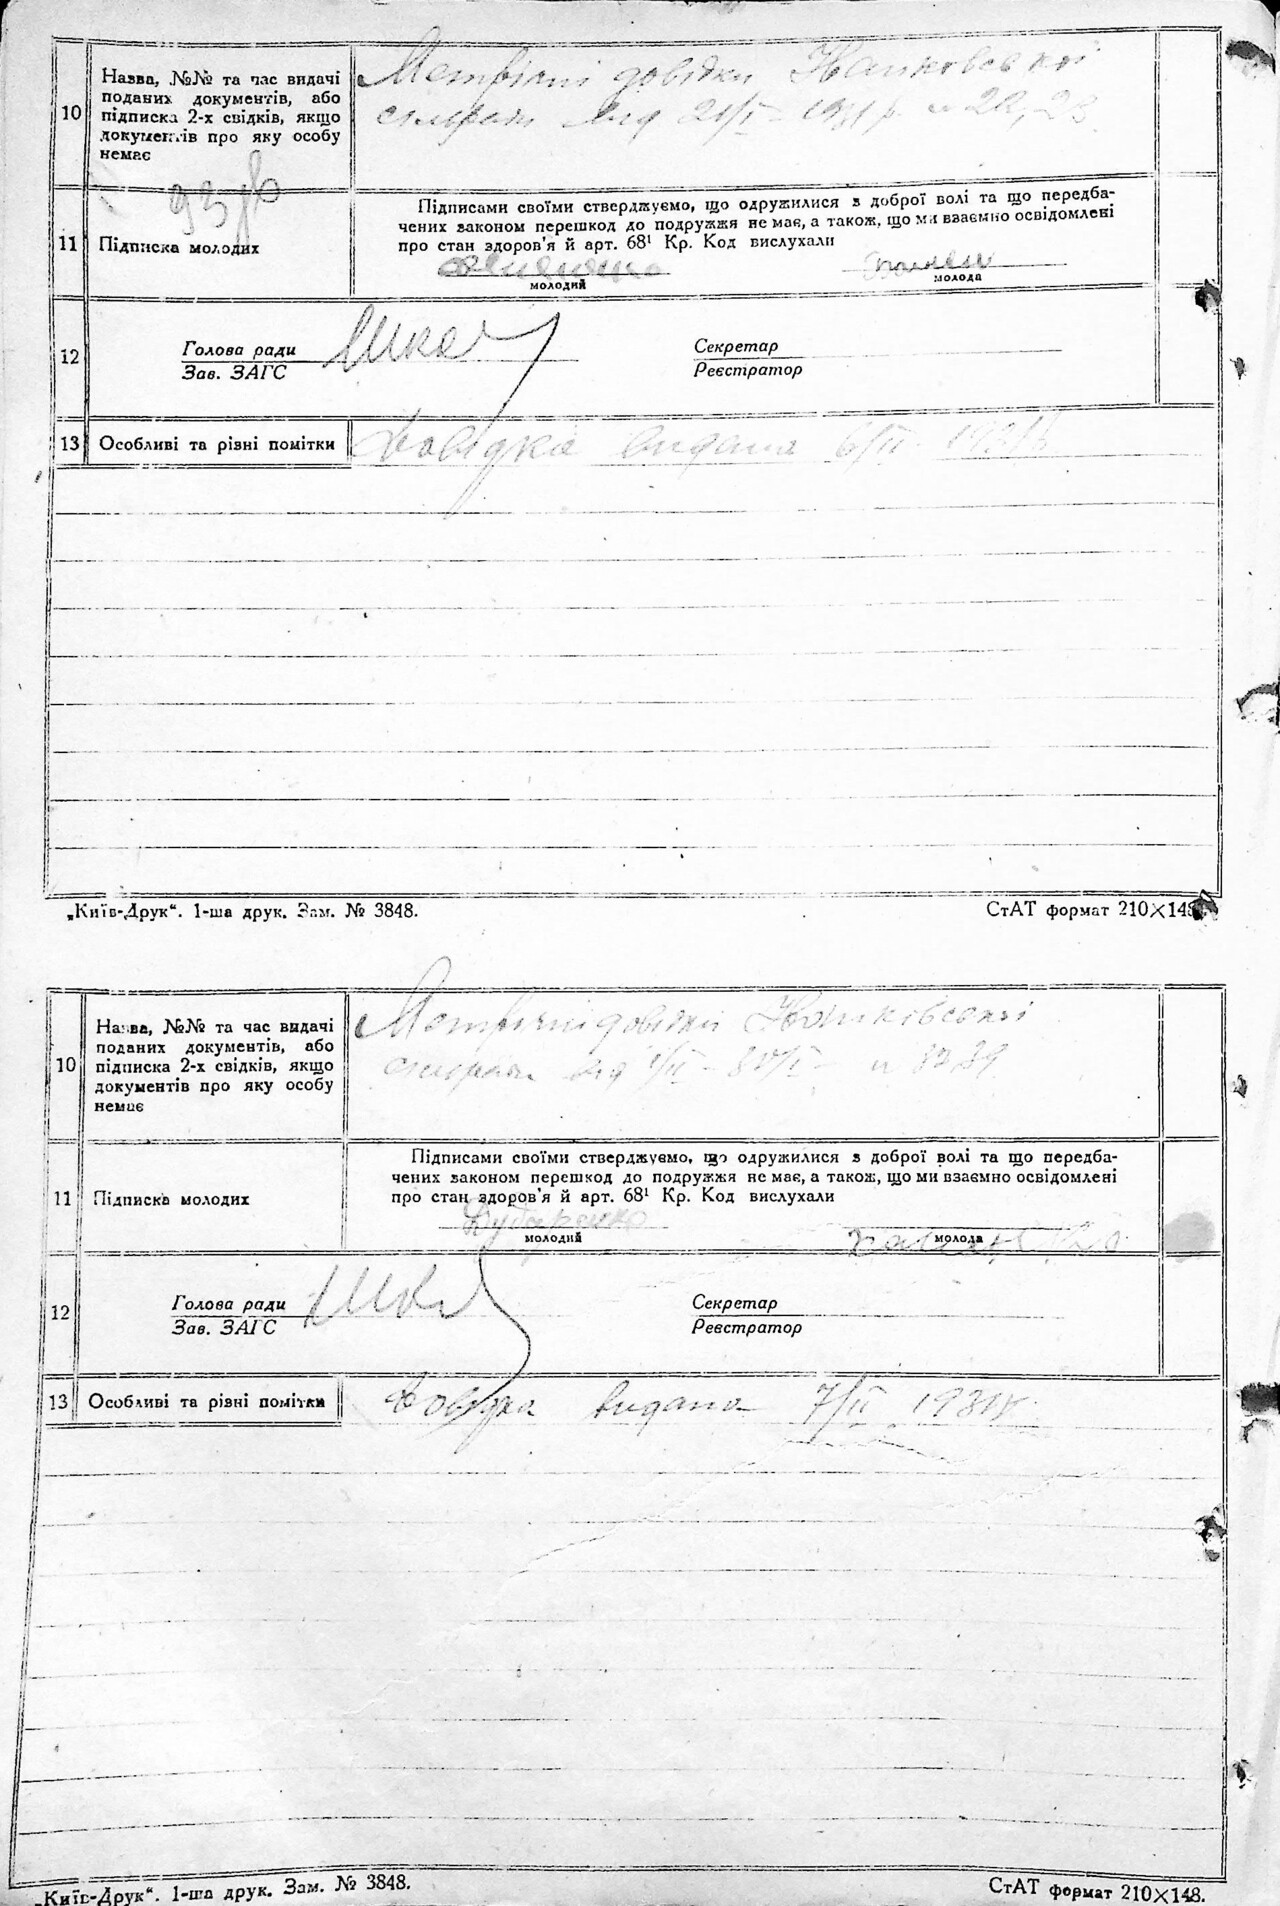 10
Назва, №№ та час видачі
поданих документів, або
підписка 2-х свідків, якщо
документів про яку особу
немає
Метричні довідки
сільради від 21/I - 1931 р. № 22, 23
11
Підписка молодих
Підписами своїми стверджуємо, що одружилися з доброї волі та що передба-
чених законом перешкод до подружжя не має, а також, що ми взаємно освідомлені
про стан здоров'я й арт. 68¹ Кр. Код вислухали
молодий
молода
12
Голова ради
Зав. ЗАГС
Секретар
Реєстратор
13
Особливі та різні помітки
Довідка видана 6/II 1931 р
„Київ-Друк“. 1-ша друк. Зам. № 3848.
СтАТ формат 210×148.
10
Назва, №№ та час видачі
поданих документів, або
підписка 2-х свідків, якщо
документів про яку особу
немає
Метричні довідки
сільради від
11
Підписка молодих
Підписами своїми стверджуємо, що одружилися з доброї волі та що передба-
чених законом перешкод до подружжя не має, а також, що ми взаємно освідомлені
про стан здоров'я й арт. 68¹ Кр. Код вислухали
Дубаренко
молодий
молода
12
Голова ради
Зав. ЗАГС
Секретар
Реєстратор
13
Особливі та різні помітки
Довідка видана 7/II 1931 р
„Київ-Друк“. 1-ша друк. Зам. № 3848.
СтАТ формат 210×148.